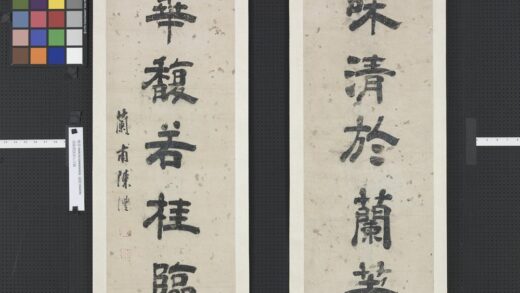 味清於蘭
華馥若桂臨
蘭甫陳澧